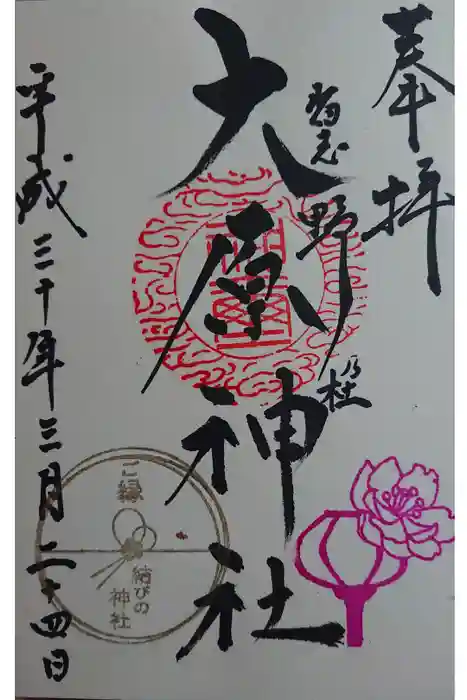 奉拝
野乃杜
大原神社
平成三十年三月二十四日
ご縁
結びの
神社